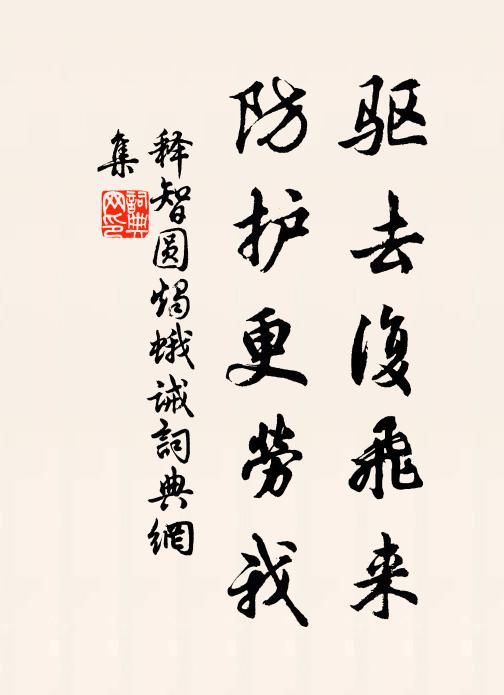 驱去復飛来
防护更劳我
释智圆烛蛾诫詞典網
集
詞典网印